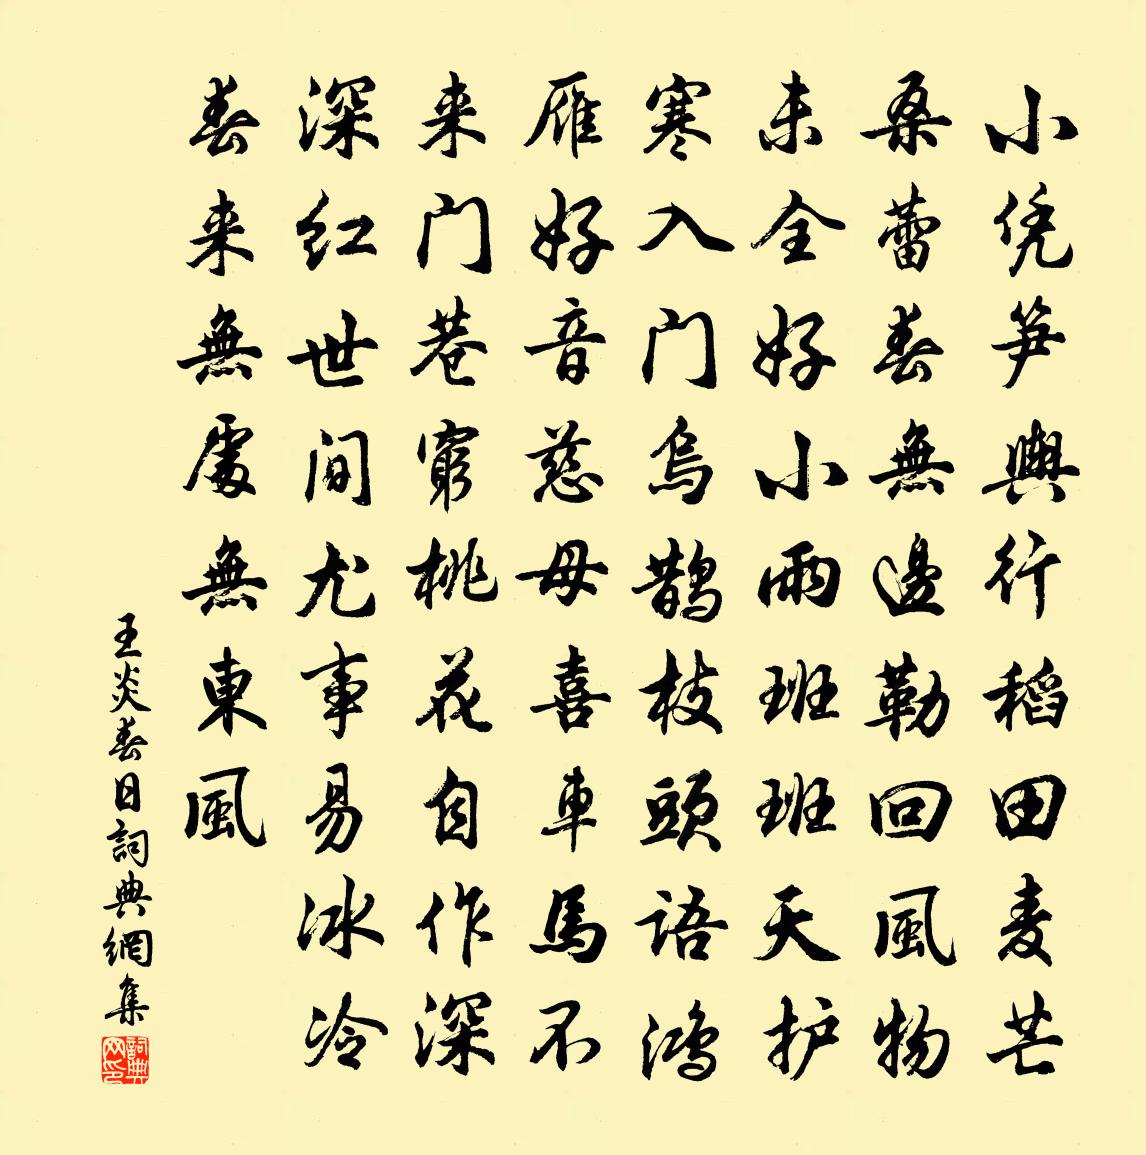 小凭笋輿行稻田麦芒
桑蕾春無邊勒回風物
未全好小雨班班天护
寒入门烏鹊枝頭語鴻
雁好音慈母喜車馬不
来门巷窮桃花自作深
深红世间尤事易冰冷
春来無處無東風
王炎春日詞典網集
詞典网印